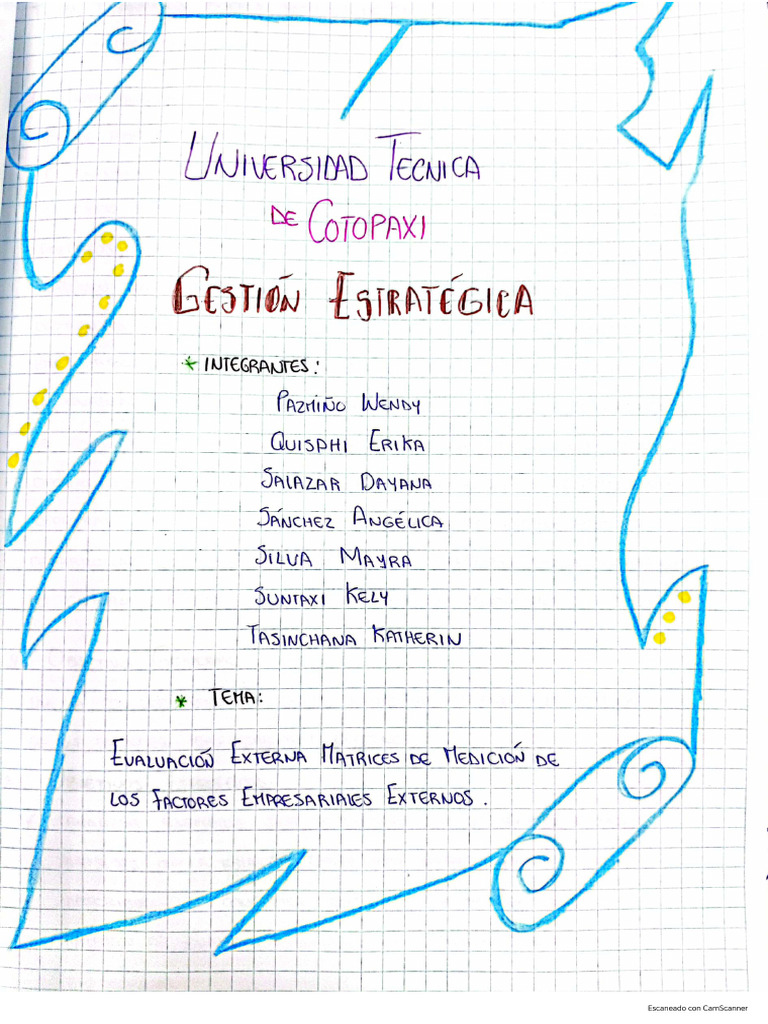 UNIVERSIDAD TECNICA
DE COTOPAXI
GESTIÓN ESTRATÉGICA
* INTEGRANTES:
PAZMIÑO WENDY
QUISPHI ERIKA
SALAZAR DAYANA
SÁNCHEZ ANGÉLICA
SILVA MAYRA
SUNTAXI KELY
TASINCHANA KATHERIN
* TEMA:
EVALUACIÓN EXTERNA MATRICES DE MEDICIÓN DE
LOS FACTORES EMPRESARIALES EXTERNOS.
Escaneado con CamScanner